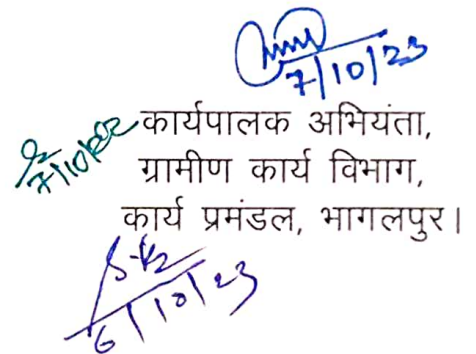 7/10/23
कार्यपालक अभियंता,
ग्रामीण कार्य विभाग,
कार्य प्रमंडल, भागलपुर।
6/10/23